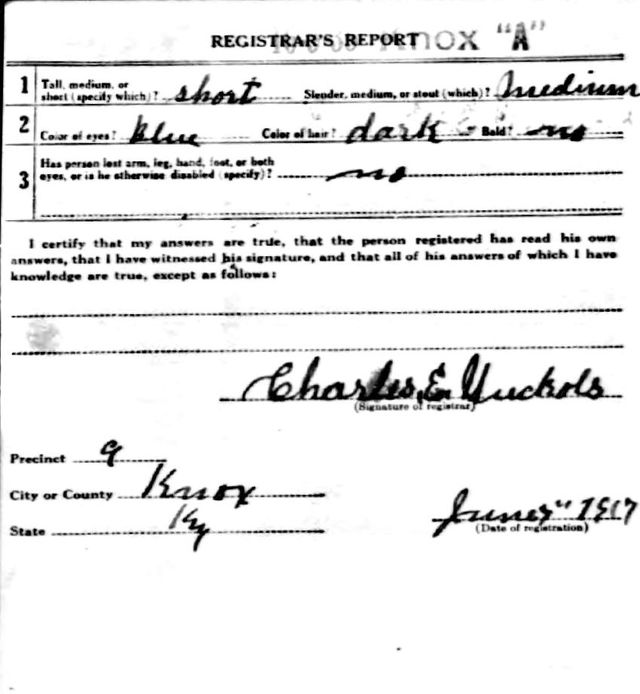 REGISTRAR'S REPORT Knox "A"
1 Tall, medium, or
short (specify which)? short Slender, medium, or stout (which)? Medium
2 Color of eyes? blue Color of hair? dark Bald? no
Has person lost arm, leg, hand, foot, or both
3 eyes, or is he otherwise disabled (specify)? no
I certify that my answers are true, that the person registered has read his own
answers, that I have witnessed his signature, and that all of his answers of which I have
knowledge are true, except as follows:
Charles E Nuckols
(Signature of registrar)
Precinct 9
City or County Knox
State Ky
June 1917
(Date of registration)